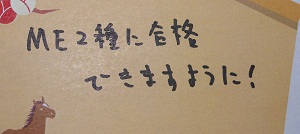 ME2種に合格
できますように!